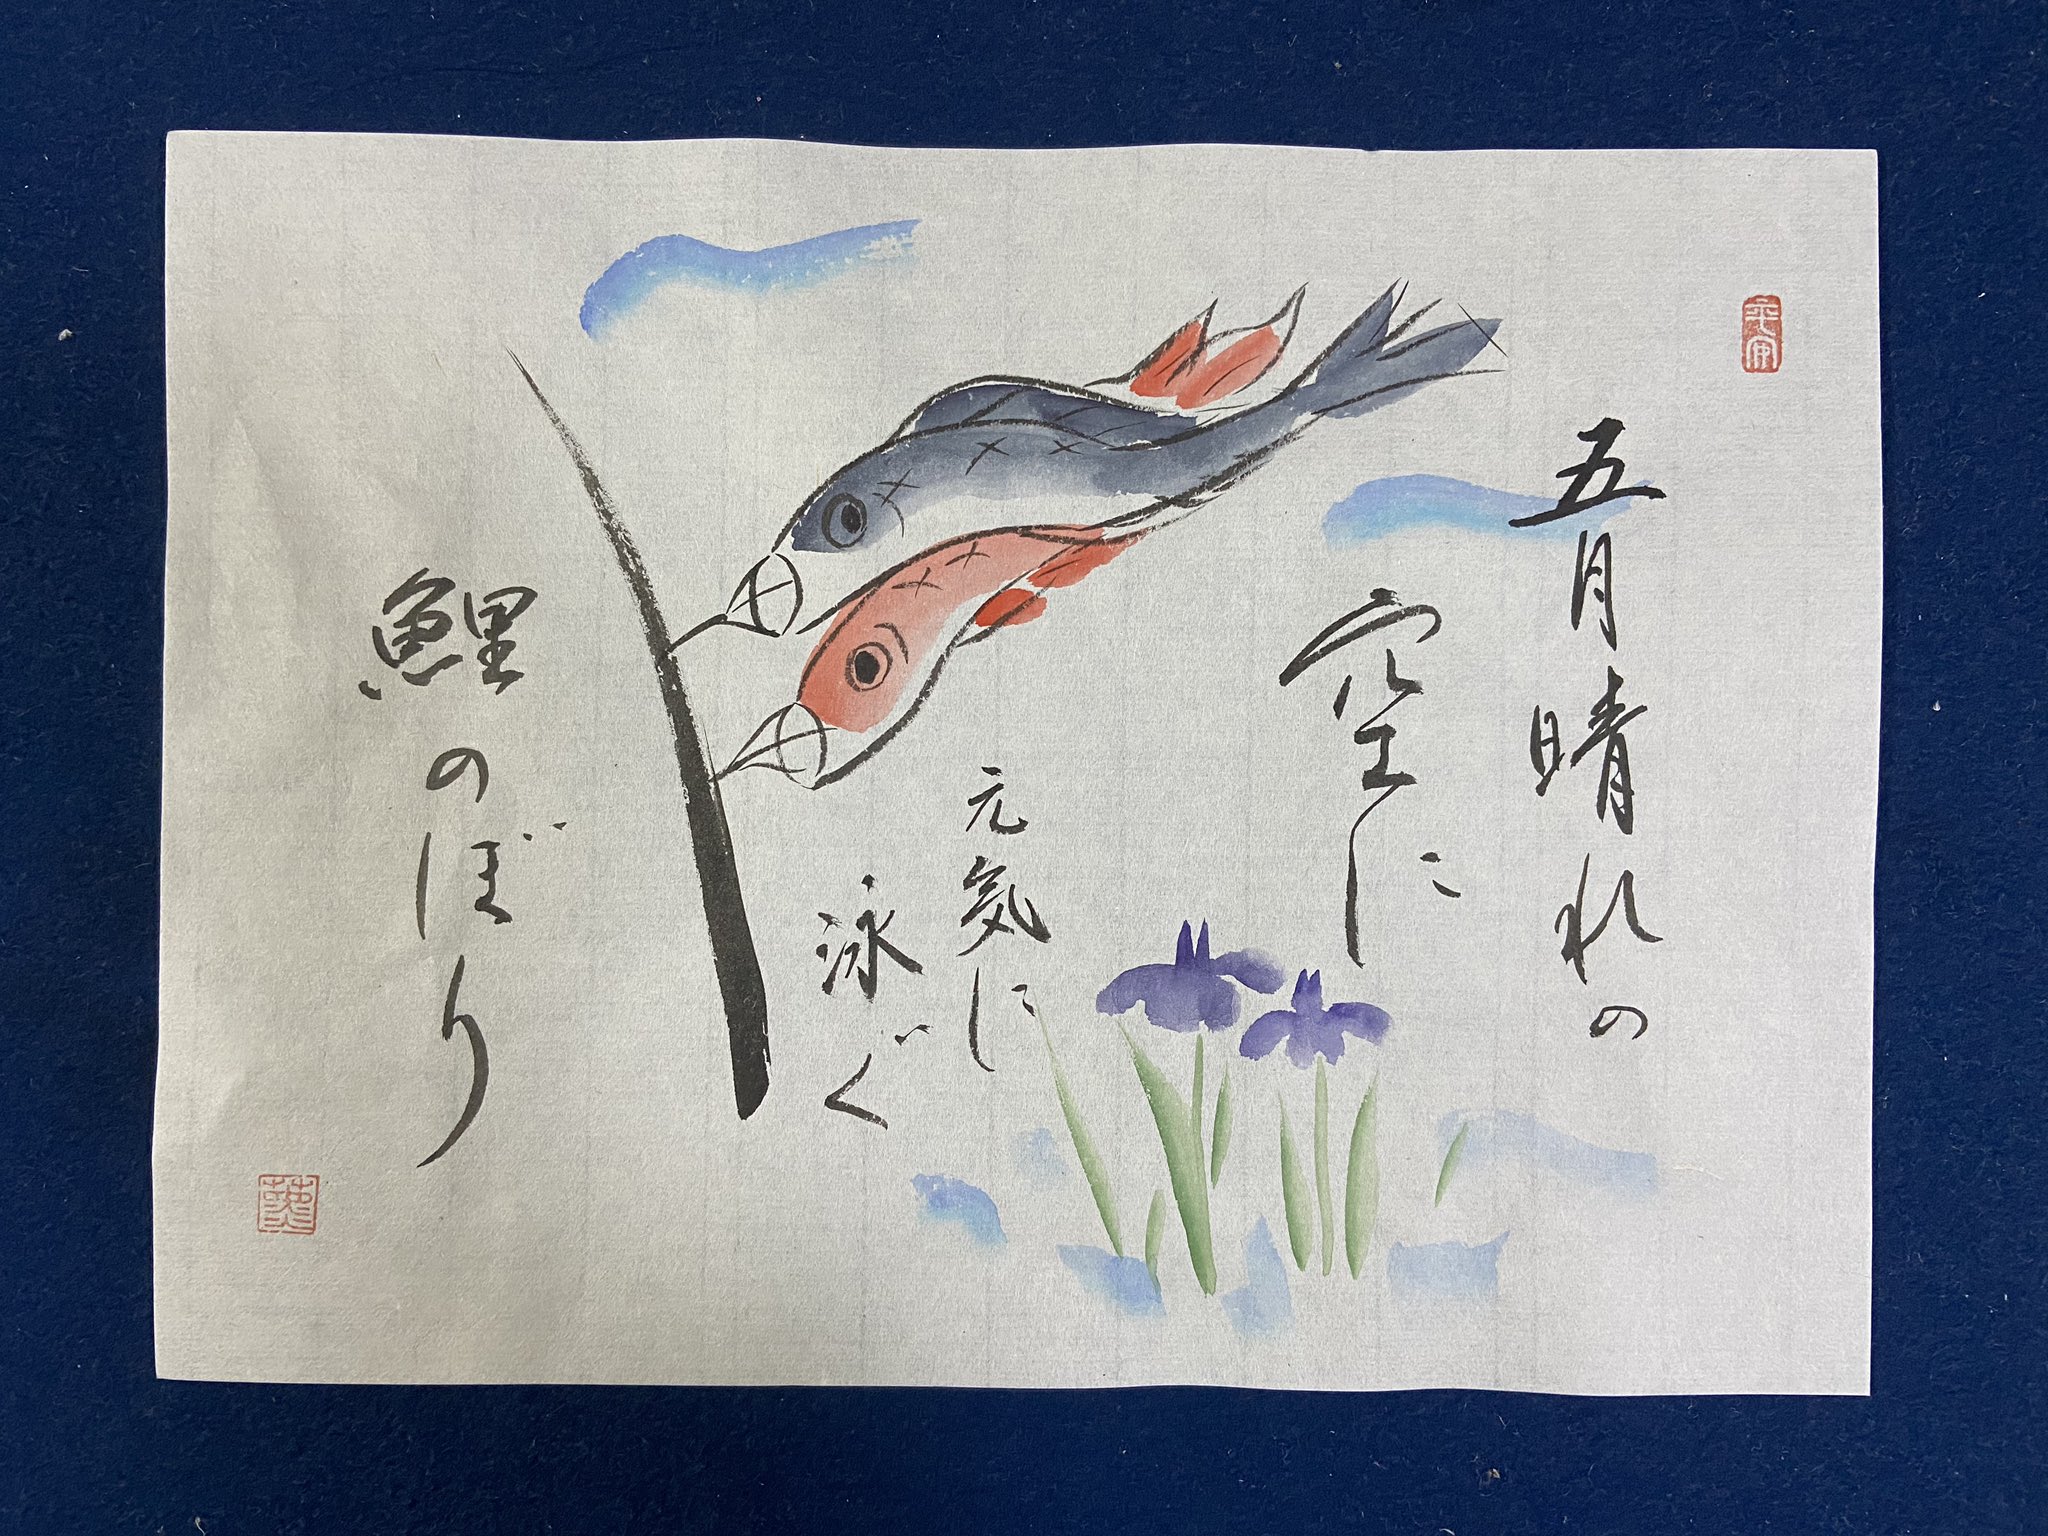 五月晴れの
空に
元気に
泳ぐ
鯉のぼり
平安